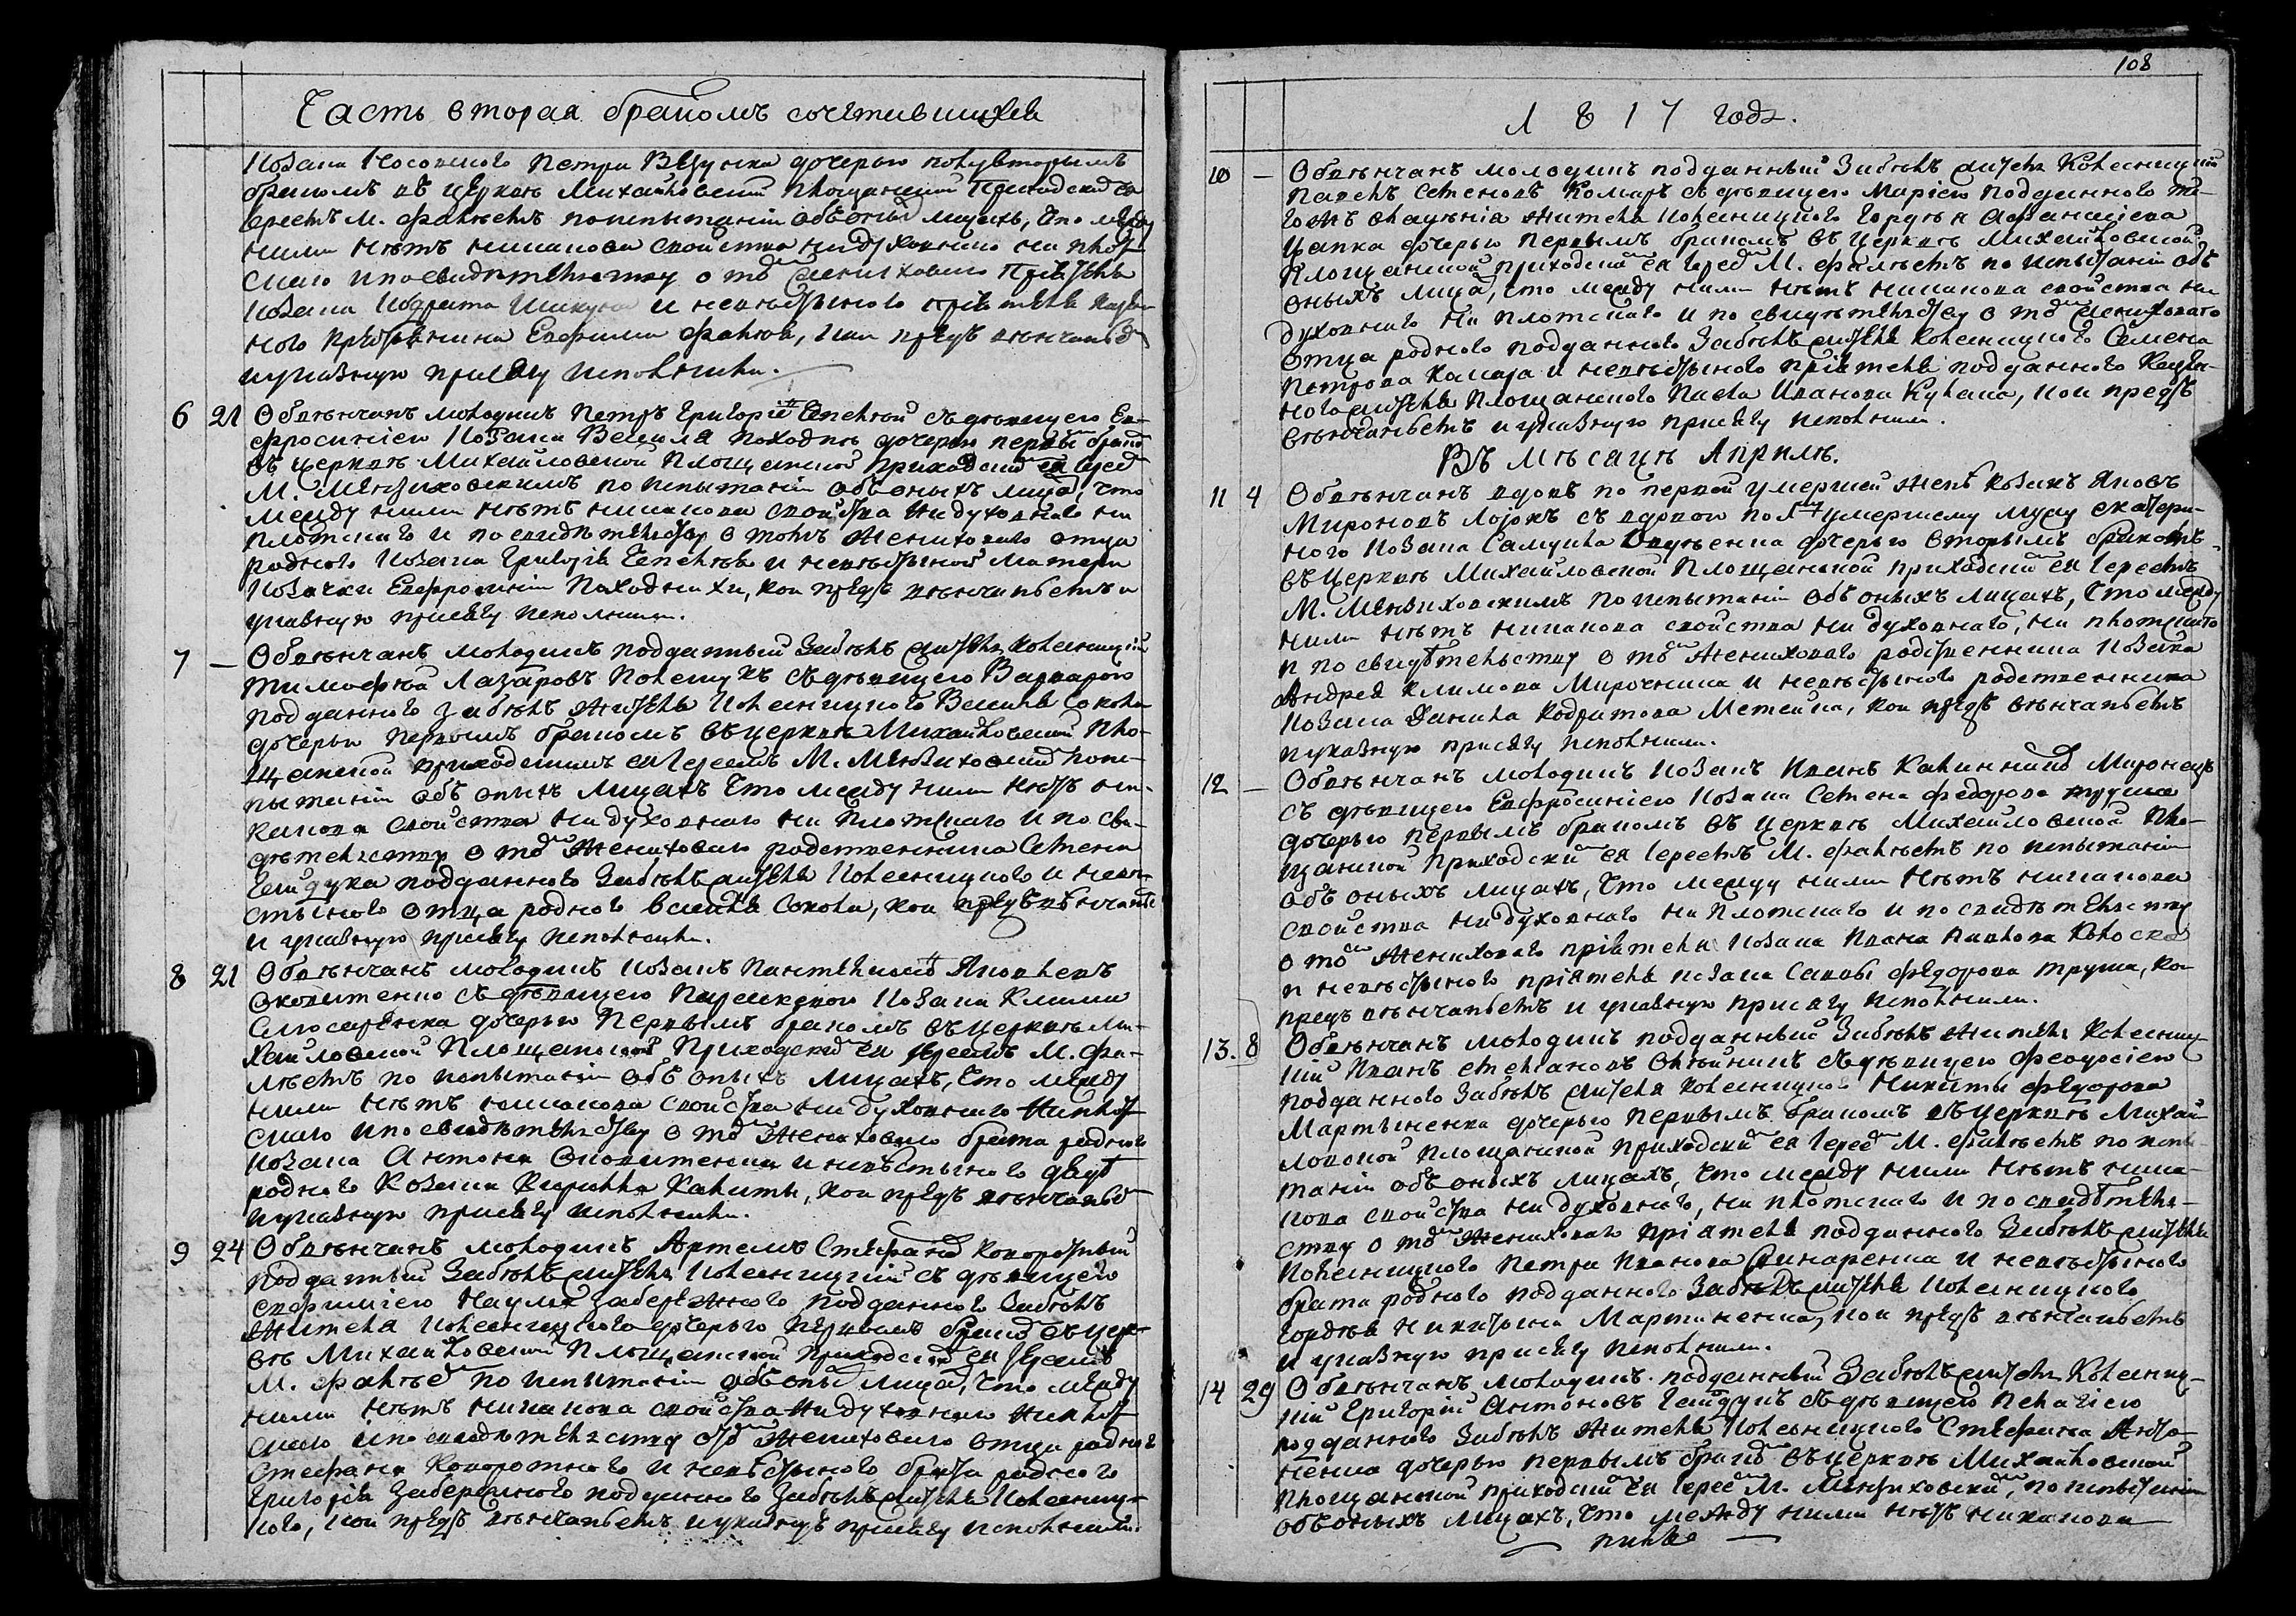 Часть вторая бракомъ сочетавшихся
козака Носовского Петра дочерью
бракомъ въ церквѣ Михайловской Площанской приходскимъ ея
ереемъ М. Фалѣемъ по испытаніи объ оныхъ лицахъ, что между
ними нѣтъ никакова свойства ни духовнаго ни плот
скаго и по свидѣтелству о томъ жениховаго пріятеля
козака Кодрата и невѣстыного пріятеля
ного Евфима Фалѣя, кои предъ вѣнчаніем
и указную присягу исполнили.
6 21 Обвѣнчанъ молодикъ Петръ Григоріевъ Чепелѣй съ дѣвицею Ев-
фросиніею козака Василя Походнѣ дочерью первым браком
въ церквѣ Михайловской Площанской приходским ея іерем
М. Менжиховскимъ по испытаніи объ оныхъ лицах, что
между ними нѣтъ никакова свойства ни духовнаго ни
плотскаго и по свидѣтелству о томъ жениховаго отца
родного козака Григорія Чепелѣя и невѣстыной матери
козачки Евфросиніи Походнихи, кои предъ вѣнчаніемъ и
указную присягу исполнили.
7 — Обвѣнчанъ молодикъ подданный Забѣлъ житель Колесницкій
Тимофѣй Лазаровъ съ дѣвицею Варварою
подданного Забѣлъ жителя Колесницкого Василя Сокола
дочерью первымъ бракомъ въ церквѣ Михайловской Пло-
щанской приходскимъ ея іереемъ М. Менжиховским по ис-
пытаніи объ оныхъ лицахъ что между ними нѣтъ ни-
какова свойства ни духовнаго ни плотскаго и по сви-
дѣтелству о том жениховаго родственника Семена
Гайдука подданного Забѣлъ жителя Колесницкого и невѣ-
стыного отца родного Василя Сокола, кои предъ вѣнчаніем
и указную присягу исполнили.
8 21 Обвѣнчанъ молодикъ козакъ Пантелимонъ Яковлевъ
съ дѣвицею Параскевою козака Клима
Слюсаренка дочерью первымъ бракомъ въ церквѣ Ми-
хайловской Площанской приходским ея іереемъ М. Фа-
лѣемъ по испытаніи объ оныхъ лицахъ, что между
ними нѣтъ никакова свойства ни духовнаго ни плот
скаго и по свидѣтелству о том жениховаго брата родного
козака Антона и невѣстыного дяди
родного козака Кирилла Калиты, кои предъ вѣнчаніем
и указную присягу исполнили.
9 24 Обвѣнчанъ молодикъ Артемъ Стефанов Коворотный
подданный Забѣлъ житель Колесницкій съ дѣвицею
Евфиміею Наума Забережного подданного Забѣлъ
жителя Колесницкого дочерью первымъ браком въ цер-
квѣ Михайловской Площанской приходским ея іереемъ
М. Фалѣем по испытаніи объ оных лицах, что между
ними нѣтъ никакова свойства ни духовнаго ни плот
скаго и по свидѣтелству о том жениховаго отца родного
Стефана Коворотного и невѣстыного брата родного
Григорія Забережного подданного Забѣлъ жителя Колесниц-
кого, кои предъ вѣнчаніемъ и указную присягу исполнили.
108
1817 годъ.
10 — Обвѣнчанъ молодикъ подданный Забѣлъ житель Колесницкій
Павелъ Семеновъ Комаръ съ дѣвицею Маріею подданного то-
гожъ владѣнія жителя Колесницкого Гордѣя Афанасіева
Цапка дочерью первымъ бракомъ въ церквѣ Михайловской
Площанской приходским ея іерем М. Фалѣемъ по испытаніи объ
оныхъ лицах, что между ними нѣтъ никакова свойства ни
духовнаго ни плотскаго и по свидѣтелству о том жениховаго
отца родного подданного Забѣлъ жителя Колесницкого Семена
Петрова Комара и невѣстыного пріятеля подданного Казен-
ного жителя Площанского Павла Иванова Кулака, кои предъ
вѣнчаніемъ и указную присягу исполнили.
Въ мѣсацѣ Априлѣ.
11 4 Обвѣнчанъ вдовъ по первой умершей женѣ козакъ Яковъ
Мироновъ съ вдовою по 1му умершему мужу Екатери-
ною козака Самуила дочерью вторымъ бракомъ
въ церквѣ Михайловской Площанской приходским ея іереемъ
М. Менжиховскимъ по испытаніи объ оныхъ лицахъ, что между
ними нѣтъ никакова свойства ни духовнаго, ни плотскаго
и по свидѣтельству о том жениховаго родственника козака
Андрея Климова Мирочника и невѣстыного родственника
козака Данила Кодратова Метейка, кои предъ вѣнчаніемъ
и указную присягу исполнили.
12 — Обвѣнчанъ молодикъ козакъ Иванъ Калинников Миронецъ
съ дѣвицею Евфросиніею козака Семена Федорова Труша
дочерью первымъ бракомъ въ церквѣ Михайловской Пло-
щанской приходским ея іереемъ М. Фалѣемъ по испытаніи
объ оныхъ лицахъ, что между ними нѣтъ никакова
свойства ни духовнаго ни плотскаго и по свидѣтелству
о том жениховаго пріятеля козака Ивана Павлова
и невѣстыного пріятеля козака Савы Федорова Труша, кои
предъ вѣнчаніемъ и указную присягу исполнили.
13. 8 Обвѣнчанъ молодикъ подданный Забѣлъ житель Колесниц-
кій Иванъ Степановъ Олѣйникъ съ дѣвицею Феодосіею
подданного Забѣлъ жителя Колесницкого Никиты Федорова
Мартыненка дочерью первымъ бракомъ въ церквѣ Михай
ловской Площанской приходским ея іерем М. Фалѣемъ по испы-
таніи объ оныхъ лицахъ, что между ними нѣтъ ника-
кова свойства ни духовнаго, ни плотскаго и по свидѣтель-
ству о том жениховаго пріятеля подданного Забѣлъ жителя
Колесницкого Петра Иванова и невѣстыного
брата родного подданного Забѣлъ жителя Колесницкого
Гордѣя Никитина Мартиненка, кои предъ вѣнчаніемъ
и указную присягу исполнили.
14 29 Обвѣнчанъ молодикъ подданный Забѣлъ житель Колесниц-
кій Григорій Антоновъ Гайдукъ съ дѣвицею Пелагіею
подданного Забѣлъ жителя Колесницкого Стефана Анто-
ненка дочерью первымъ браком въ церквѣ Михайловской
Площанской приходским ея іерем М. Менжиховским, по испытаніи
объ оныхъ лицахъ, что между ними нѣтъ никакова